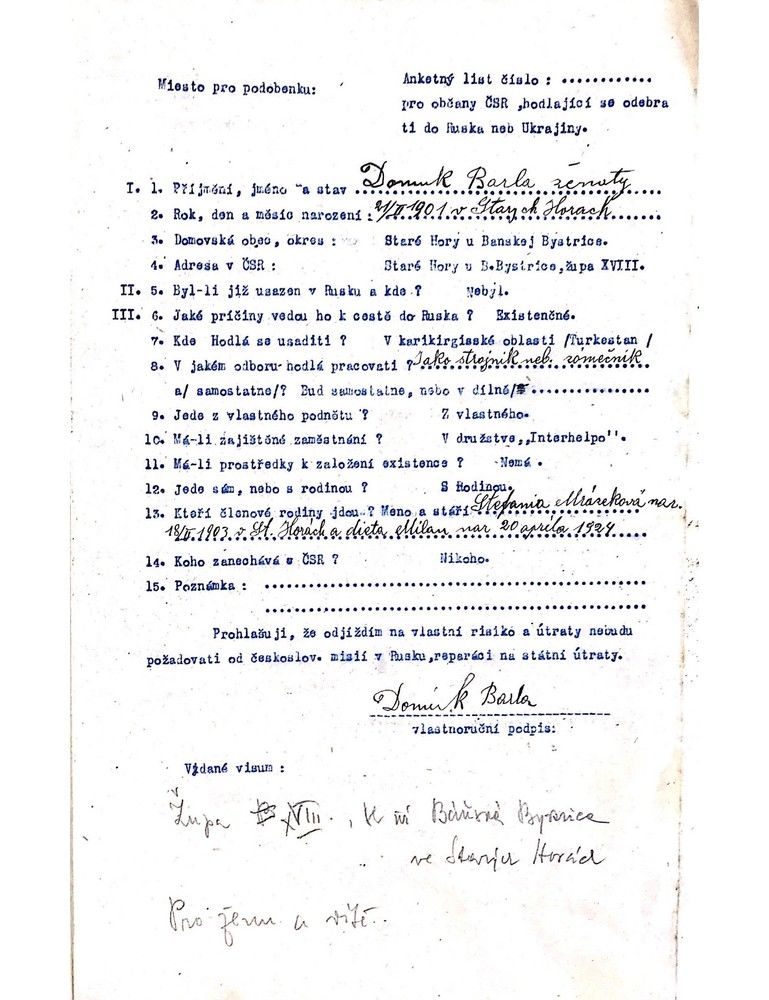 Miesto pro podobenku:
Anketný list číslo : ............
pro občany ČSR ,hodlající se odebra
ti do Ruska neb Ukrajiny.
I. 1. Příjmění, jméno a stav Dominik Barla ženatý
2. Rok, den a měsíc narození : 21/II 1901 v Starých Horách
3. Domovská obec, okres : Staré Hory u Banskej Bystrice.
4. Adresa v ČSR : Staré Hory u B.Bystrice,župa XVIII.
II. 5. Byl-li již usazen v Rusku a kde ? Nebyl.
III. 6. Jaké príčiny vedou ho k cestě do Ruska ? Existenčné.
7. Kde Hodlá se usaditi ? V karikirgisské oblasti /Turkestan /
8. V jakém odboru hodlá pracovati ? Jako strojnik neb. zómečník
a/ samostatne/? Bud samostatne, nebo v dílně/ ................
9. Jede z vlastného podnětu ? Z vlastného.
10. Má-li zajištěné zaměstnání ? V družstve,,Interhelpo".
11. Má-li prostředky k založení existence ? Nemá .
12. Jede sám, nebo s rodinou ? S Rodinou.
13. Kteří členové rodiny jdou ? Meno a stáří Stefania Mrázeková nar.
18/II 1903 v St. Horách a dieta Milan nar 20 aprila 1924
14. Koho zanechává v ČSR ? Nikoho.
15. Poznámka : ................
................
Prohlašuji, že odjíždím na vlastní risiko a útraty nebudu
požadovati od českoslov. misií v Rusku,reparáci na státní útraty.
Dominik Barla
vlastnoruční podpis:
Vydané visum :
Župa XVIII. , Báňská Bystrica
ve Starých Horách
Pro ženu a dítě.